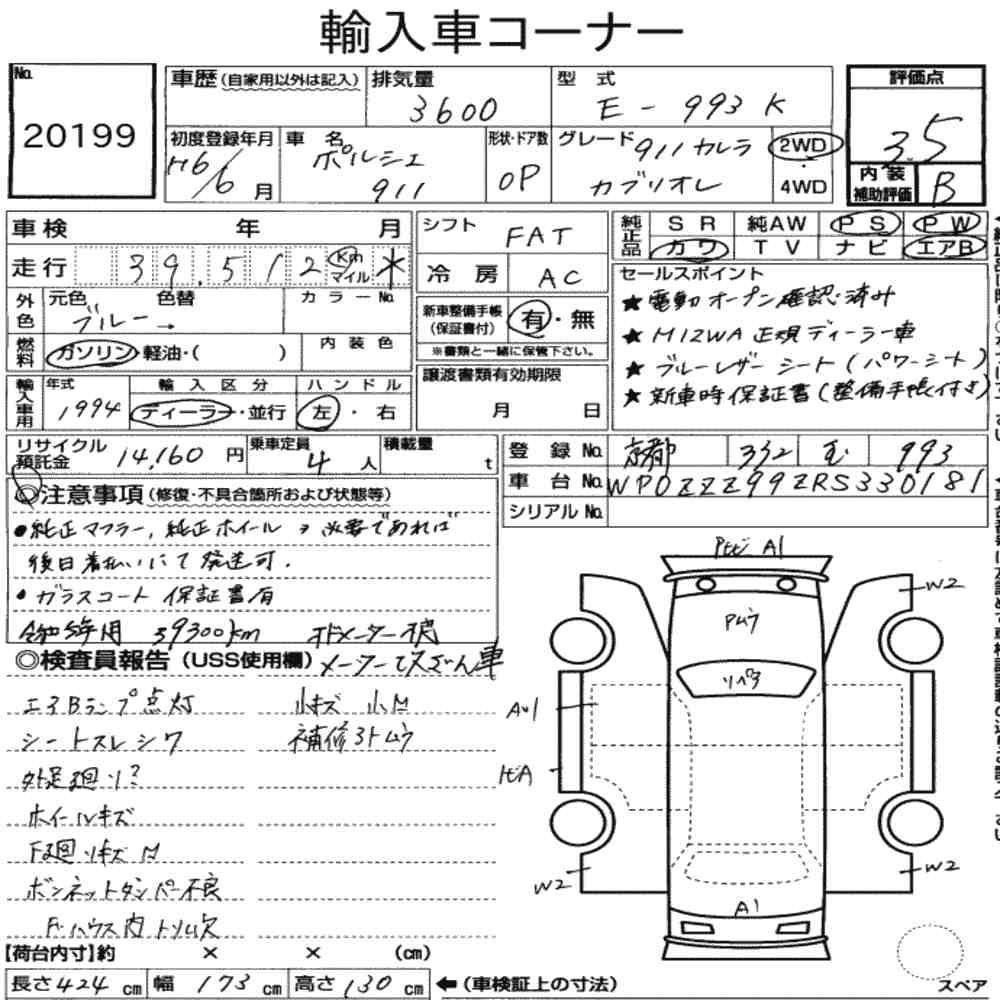 輸入車コーナー
No.
20199
車歴(自家用以外は記入)
排気量
3600
型式
E - 993K
評価点
3.5
初度登録年月
H6/6月
車名
ポルシェ
911
形状・ドア数
OP
グレード
911カルラ
カブリオレ
2WD
・
4WD
内装
補助評価
B
車検 年 月
走行 39,512 Km マイル *
シフト
FAT
冷房
AC
純正品
SR 純AW PS PW
カワ TV ナビ エアB
セールスポイント
★電動オープン確認済み
★M12WA正規ディーラー車
★ブルーレザーシート(パワーシート)
★新車時保証書(整備手帳付き)
外色
元色 色替
ブルー→
カラーNo.
内装色
燃料
ガソリン・軽油・( )
新車整備手帳
(保証書付)
有・無
※書類と一緒に保管下さい。
輸入車用
年式
1994
輸入区分
ディーラー・並行
ハンドル
左・右
譲渡書類有効期限
月 日
リサイクル
預託金
14,160円
乗車定員
4人
積載量
t
登録No.
京都 332 993
車台No.
WP0ZZZ99ZRS330181
シリアルNo.
◎注意事項(修復・不具合箇所および状態等)
●純正マフラー,純正ホイール ヲ 必要であれば
後日着払いにて発送可.
●ガラスコート保証書有
39300km メーター
◎検査員報告(USS使用欄) メーター改ざん車
エアBランプ点灯
シートスレシワ
外足廻リ?
ホイールキズ
下廻リキズM
ボンネットダンパー不良
F・ハウス内トリム欠
小キズ 小M
補修3トムラ
トビ A1
Pムラ
リペア
W2
A・1
トビA
W2
A1
W2
【荷台内寸】約 × × (cm)
長さ424cm 幅173cm 高さ130cm
←(車検証上の寸法)
スペア